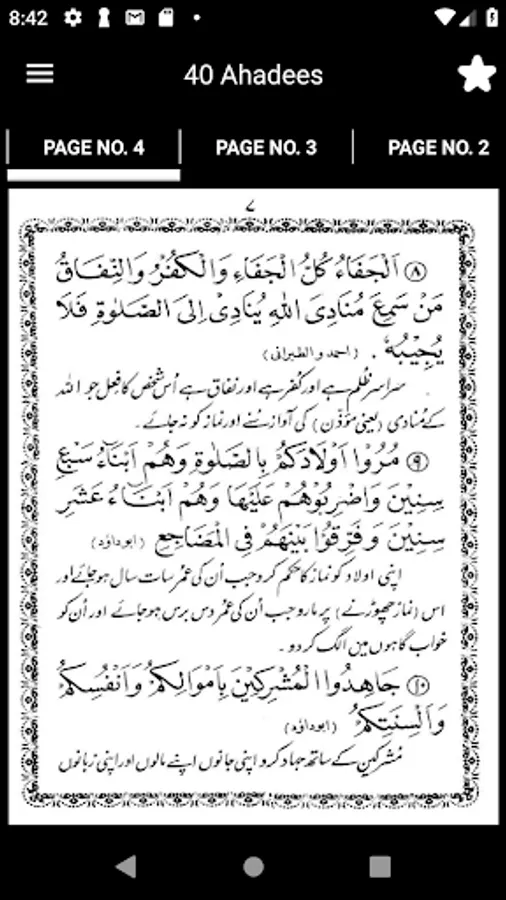 8:42
40 Ahadees
PAGE NO. 4
PAGE NO. 3
PAGE NO. 2
۷
۸ اَلْجَفَاءُ كُلُّ الْجَفَاءِ وَالْكُفْرُ وَالنِّفَاقُ
مَنْ سَمِعَ مُنَادِيَ اللّٰهِ يُنَادِيْ اِلَى الصَّلٰوةِ فَلَا
يُجِيْبُهٗ . (احمد والطبرانی)
سراسر ظلم ہے اور کفر ہے اور نفاق ہے اُس شخص کا فعل جو اللہ
کے مُنادی (یعنی مؤذن) کی آواز سُنے اور نماز کو نہ جائے۔
۹ مُرُوْا اَوْلَادَكُمْ بِالصَّلٰوةِ وَهُمْ اَبْنَاءُ سَبْعِ
سِنِيْنَ وَاضْرِبُوْهُمْ عَلَيْهَا وَهُمْ اَبْنَاءُ عَشْرِ
سِنِيْنَ وَفَرِّقُوْا بَيْنَهُمْ فِي الْمَضَاجِعِ (ابوداؤد)
اپنی اولاد کو نماز کا حکم کرو جب اُن کی عمر سات سال ہوجائے اور
اس (نماز چھوڑنے) پر مارو جب اُن کی عمر دس برس ہوجائے اور اُن کو
خواب گاہوں میں الگ کر دو۔
۱۰ جَاهِدُوا الْمُشْرِكِيْنَ بِاَمْوَالِكُمْ وَاَنْفُسِكُمْ
وَاَلْسِنَتِكُمْ (ابوداؤد)
مُشرکین کے ساتھ جہاد کرو اپنی جانوں اپنے مالوں اور اپنی زبانوں